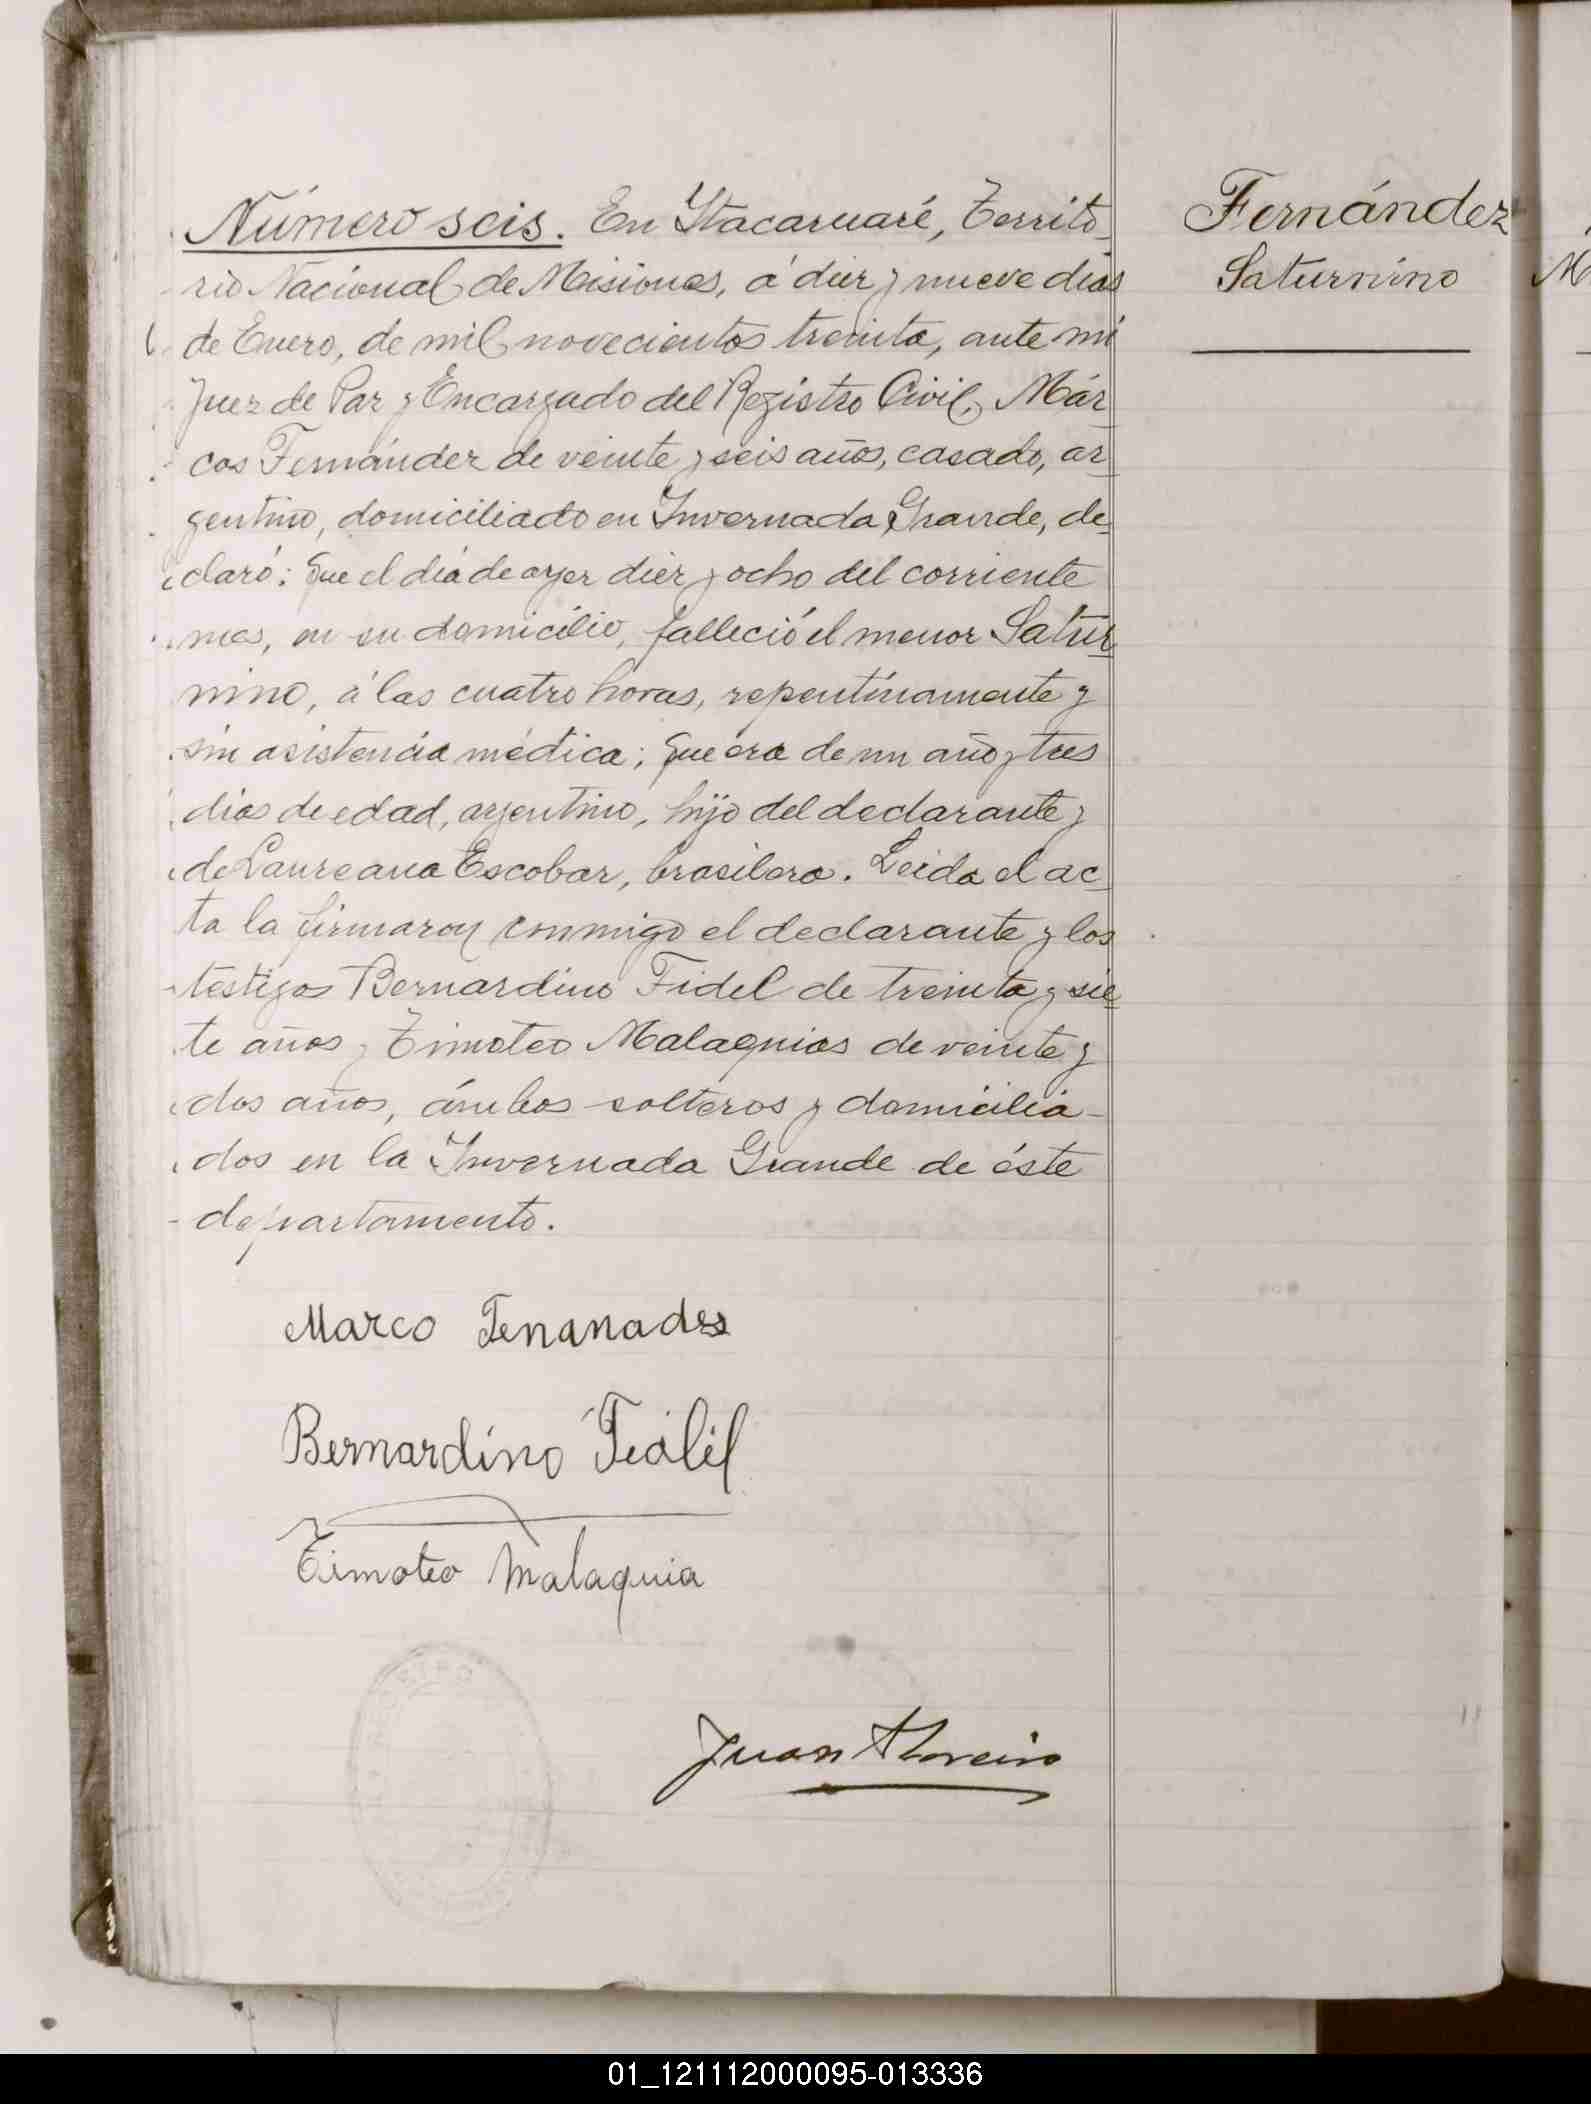 Número seis. En Ytacaruaré, Territo-
rio Nacional de Misiones, á diez y nueve dias
de Enero, de mil novecientos treinta, ante mi
Juez de Paz y Encargado del Registro Civil, Már-
cos Fernández de veinte y seis años, casado, ar-
gentino, domiciliado en Invernada Grande, de-
claró: Que el dia de ayer diez y ocho del corriente
mes, en su domicilio, falleció el menor Satur-
nino, á las cuatro horas, repentinamente y
sin asistencia médica; Que era de un año y tres
dias de edad, argentino, hijo del declarante y
de Laureana Escobar, brasilera. Leida el ac-
ta la firmaron conmigo el declarante y los
testigos Bernardino Fidel de treinta y sie-
te años y Timoteo Malaquias de veinte y
dos años, ámbos solteros y domicilia-
dos en la Invernada Grande de éste
departamento.
Fernández
Saturnino
Marco Fenanades
Bernardino
Timoteo Malaquia
Juan
01_121112000095-013336